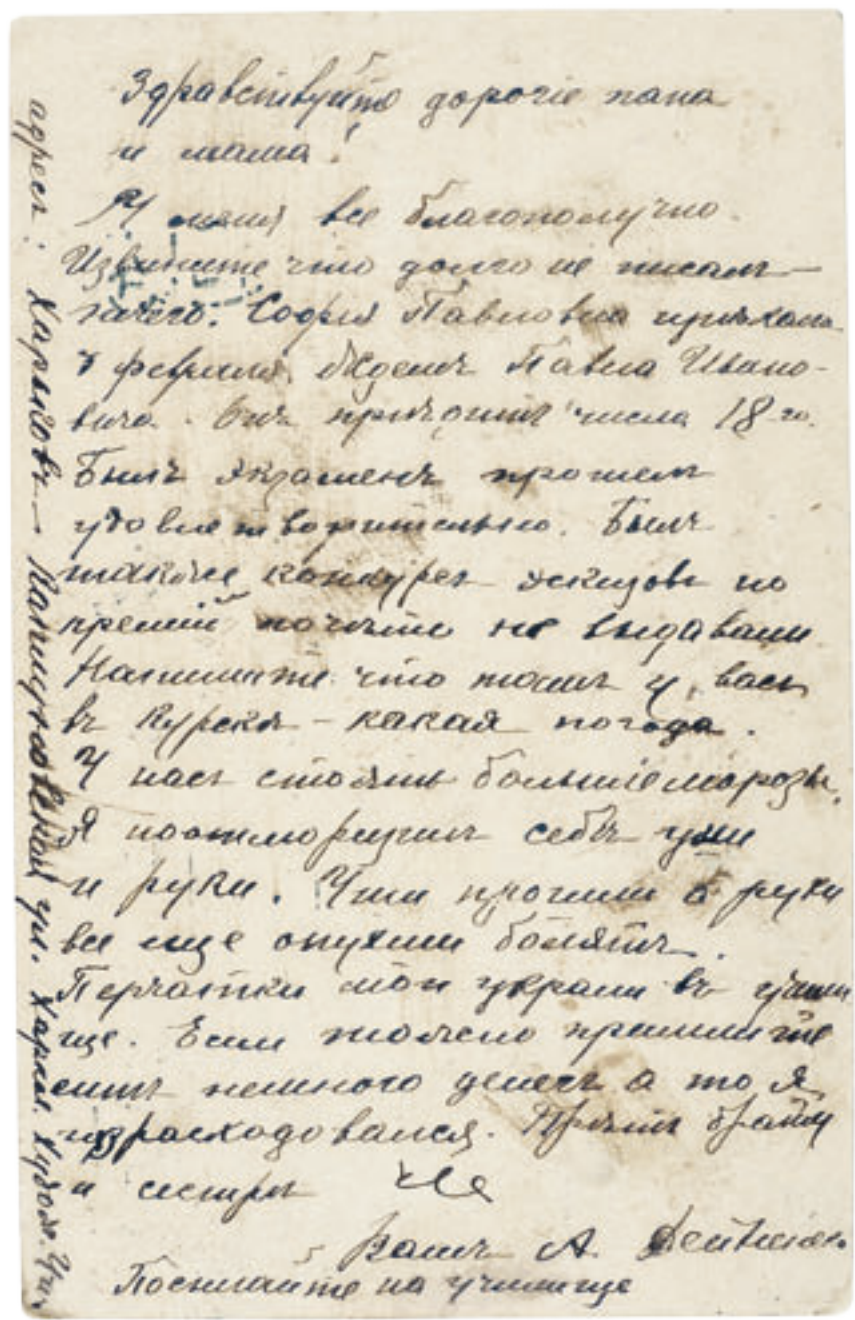 Здравствуйте дорогіе папа
и мама!
У меня все благополучно.
Извините что долго не писалъ —
нечего. Софья Павловна пріѣхала
февраля. Павла Ивано-
вича. числа 18-го.
Былъ экзаменъ прошелъ
удовлетворительно. Былъ
также конкурсъ эскизовъ но
премій почти не выдавали.
Напишите что тамъ у васъ
въ Курскѣ – какая погода.
У насъ стоятъ большіе морозы.
Я поотморозилъ себѣ уши
и руки. Уши прошли а руки
все еще опухши болятъ.
Перчатки мои украли въ учили
ще. Если можно пришлите
немного денегъ а то я
израсходовался. Привѣтъ брату
и сестрѣ
Вашъ А. Дейнека
Посылайте на училище
адресъ: Харьковъ — Каплуновская ул. Харьк. Худож. Уч.